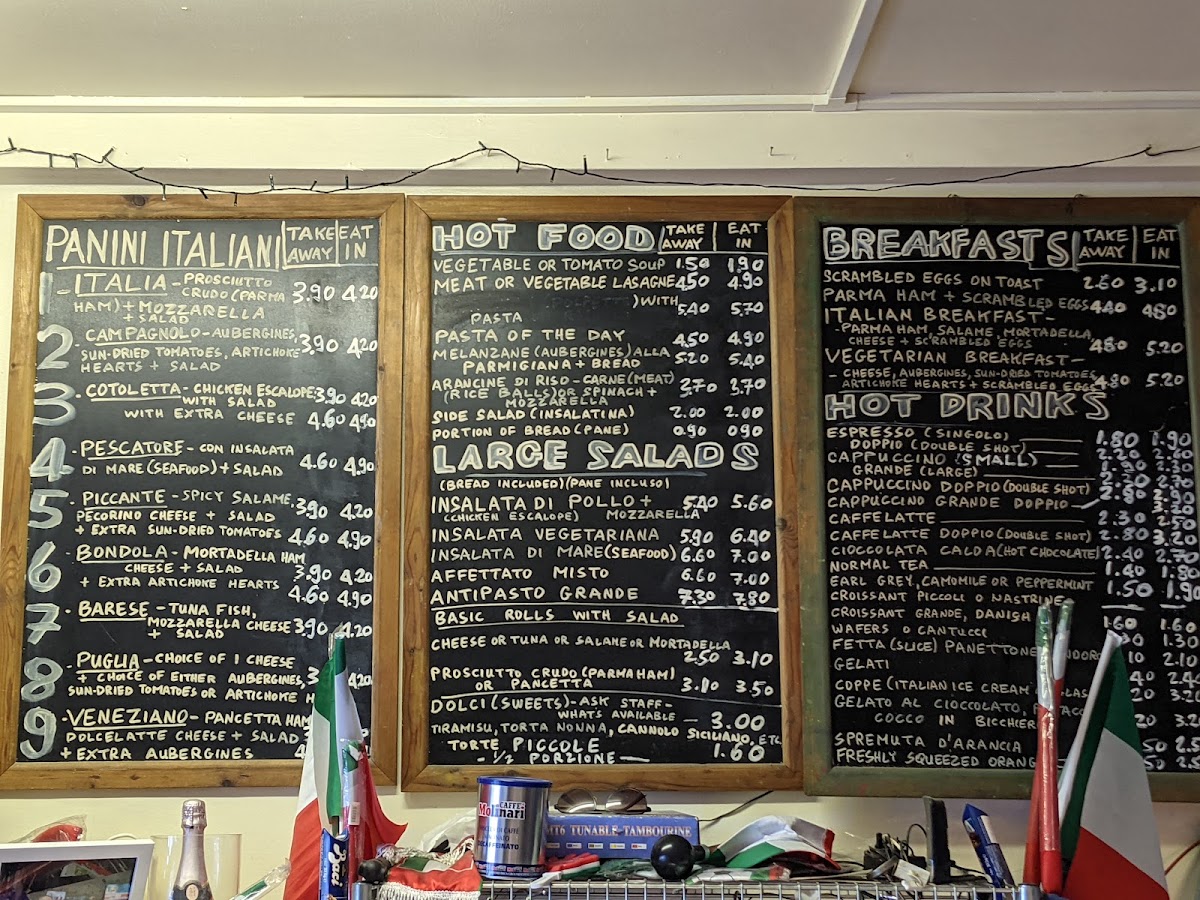 PANINI ITALIANI TAKE AWAY EAT IN
1 - ITALIA - PROSCIUTTO
CRUDO (PARMA 3.90 4.20
HAM) + MOZZARELLA
+ SALAD
2 - CAMPAGNOLO - AUBERGINES,
SUN-DRIED TOMATOES, ARTICHOKE 3.90 4.20
HEARTS + SALAD
3 - COTOLETTA - CHICKEN ESCALOPE 3.90 4.20
WITH SALAD
WITH EXTRA CHEESE 4.60 4.90
4 - PESCATORE - CON INSALATA
DI MARE (SEAFOOD) + SALAD 4.60 4.90
5 - PICCANTE - SPICY SALAME,
PECORINO CHEESE + SALAD 3.90 4.20
+ EXTRA SUN-DRIED TOMATOES 4.60 4.90
6 - BONDOLA - MORTADELLA HAM
CHEESE + SALAD 3.90 4.20
+ EXTRA ARTICHOKE HEARTS 4.60 4.90
7 - BARESE - TUNA FISH,
MOZZARELLA CHEESE 3.90 4.20
+ SALAD
8 - PUGLIA - CHOICE OF 1 CHEESE
+ CHOICE OF EITHER AUBERGINES,
SUN-DRIED TOMATOES OR ARTICHOKE
9 - VENEZIANO - PANCETTA HAM
DOLCELATTE CHEESE + SALAD
+ EXTRA AUBERGINES
HOT FOOD TAKE AWAY EAT IN
VEGETABLE OR TOMATO SOUP 1.50 1.90
MEAT OR VEGETABLE LASAGNE 4.50 4.90
) WITH
PASTA 5.40 5.70
PASTA OF THE DAY 4.50 4.90
MELANZANE (AUBERGINES) ALLA 5.20 5.40
PARMIGIANA + BREAD
ARANCINE DI RISO - CARNE (MEAT) 3.70 3.70
(RICE BALLS) OR SPINACH +
MOZZARELLA
SIDE SALAD (INSALATINA) 2.00 2.00
PORTION OF BREAD (PANE) 0.90 0.90
LARGE SALADS
(BREAD INCLUDED) (PANE INCLUSO)
INSALATA DI POLLO + 5.40 5.60
(CHICKEN ESCALOPE) MOZZARELLA
INSALATA VEGETARIANA 5.90 6.40
INSALATA DI MARE (SEAFOOD) 6.60 7.00
AFFETTATO MISTO 6.60 7.00
ANTIPASTO GRANDE 7.30 7.80
BASIC ROLLS WITH SALAD
CHEESE OR TUNA OR SALAME OR MORTADELLA
2.50 3.10
PROSCIUTTO CRUDO (PARMA HAM)
OR PANCETTA 3.50
DOLCI (SWEETS) - ASK STAFF -
WHATS AVAILABLE - 3.00
TIRAMISU, TORTA NONNA, CANNOLO SICILIANO, ETC
TORTE PICCOLE 1.60
- 1/2 PORZIONE -
BREAKFASTS TAKE AWAY EAT IN
SCRAMBLED EGGS ON TOAST 2.60 3.10
PARMA HAM + SCRAMBLED EGGS 4.40 4.80
ITALIAN BREAKFAST -
- PARMA HAM, SALAME, MORTADELLA, 4.80 5.20
CHEESE + SCRAMBLED EGGS
VEGETARIAN BREAKFAST -
- CHEESE, AUBERGINES, SUN-DRIED TOMATOES,
ARTICHOKE HEARTS + SCRAMBLED EGGS 4.80 5.20
HOT DRINKS
ESPRESSO (SINGOLO) 1.80 1.90
DOPPIO (DOUBLE SHOT)
CAPPUCCINO (SMALL)
GRANDE (LARGE)
CAPPUCCINO DOPPIO (DOUBLE SHOT)
CAPPUCCINO GRANDE DOPPIO
CAFFE LATTE 2.30
CAFFE LATTE DOPPIO (DOUBLE SHOT) 2.80 3.20
CIOCCOLATA CALDA (HOT CHOCOLATE) 2.40
NORMAL TEA 1.40 1.80
EARL GREY, CAMOMILE OR PEPPERMINT 1.50 1.90
CROISSANT PICCOLI O NASTRINE
CROISSANT GRANDE, DANISH 1.60 1.60
WAFERS O CANTUCCI 1.30
FETTA (SLICE) PANETTONE 2.10
GELATI
COPPE (ITALIAN ICE CREAM
GELATO AL CIOCCOLATO,
COCCO IN BICCHIER
SPREMUTA D'ARANCIA
FRESHLY SQUEEZED ORANG
CAFFÈ
Molinari
MT6 TUNABLE-TAMBOURINE